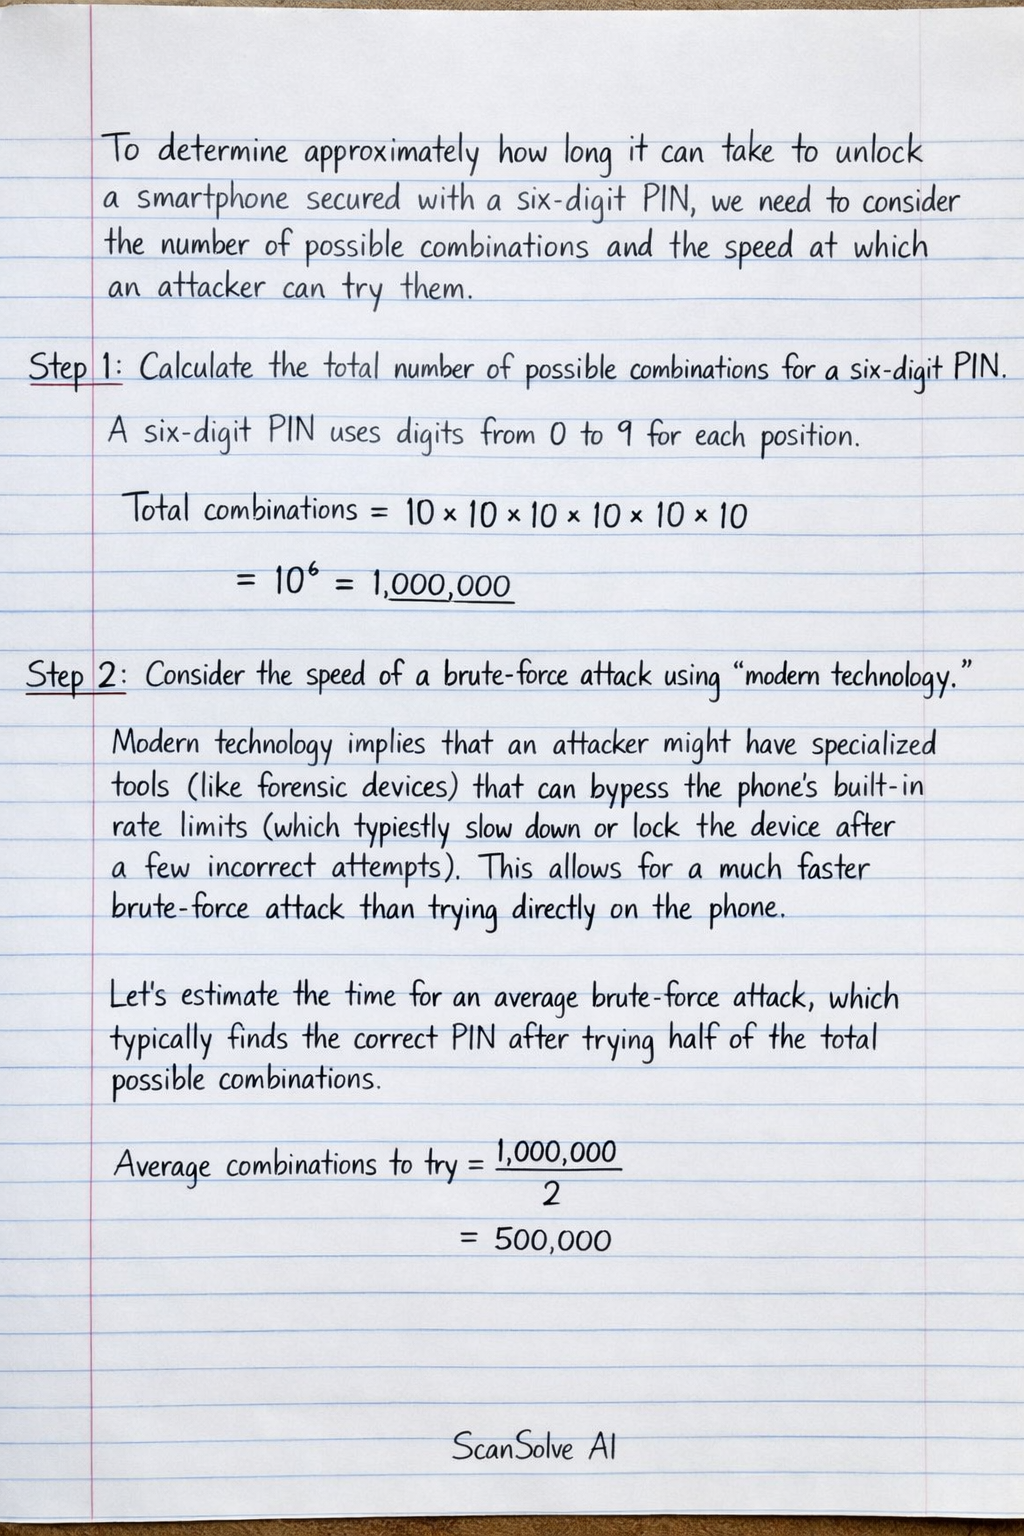 To determine approximately how long it can take to unlock
a smartphone secured with a six-digit PIN, we need to consider
the number of possible combinations and the speed at which
an attacker can try them.
Step 1: Calculate the total number of possible combinations for a six-digit PIN.
A six-digit PIN uses digits from 0 to 9 for each position.
Total combinations = 10 × 10 × 10 × 10 × 10 × 10
= 10⁶ = 1,000,000
Step 2: Consider the speed of a brute-force attack using “modern technology.”
Modern technology implies that an attacker might have specialized
tools (like forensic devices) that can bypess the phone's built-in
rate limits (which typiestly slow down or lock the device after
a few incorrect attempts). This allows for a much faster
brute-force attack than trying directly on the phone.
Let's estimate the time for an average brute-force attack, which
typically finds the correct PIN after trying half of the total
possible combinations.
Average combinations to try = 1,000,000
2
= 500,000
ScanSolve AI